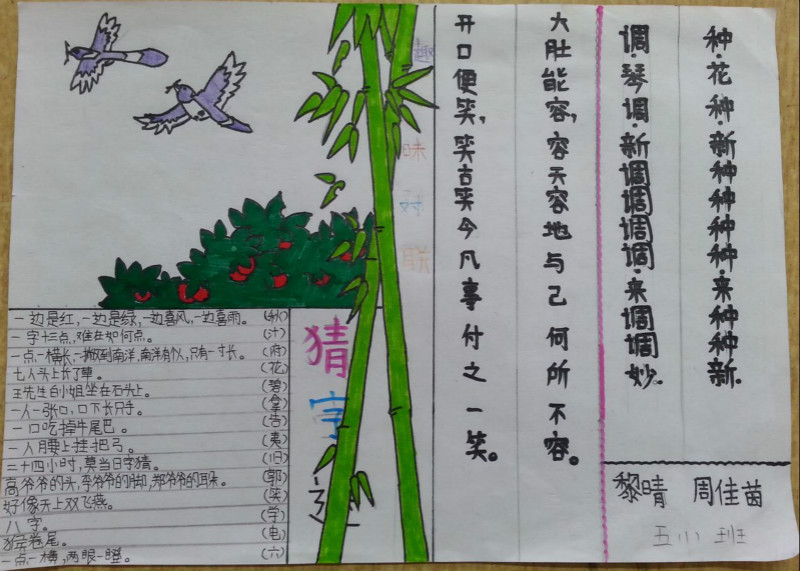 种·花种·新种种种种·来种种新.
调·琴调·新调调调调·来调调妙.
大肚能容,容天容地与己何所不容。
开口便笑,笑古笑今凡事付之一笑。
趣味对联
猜字
一边是红,一边是绿,一边喜风,一边喜雨。(秋)
一字十三点,难在如何点。(汁)
一点一横长,一撇到南洋,南洋有个人,只有一寸长。(府)
七人头上长了草。(花)
王先生白小姐坐在石头上。(碧)
一人一张口,口下长只手。(拿)
一口吃掉牛尾巴。(告)
一人腰上挂把弓。(夷)
二十四小时,莫当日字猜。(旧)
高爷爷的头,李爷爷的脚,郑爷爷的耳朵。(郭)
好像天上双飞燕。
八字。(学)
猴卷尾。(电)
一点一横,两眼一瞪。(六)
黎晴 周佳茵
五(1)班